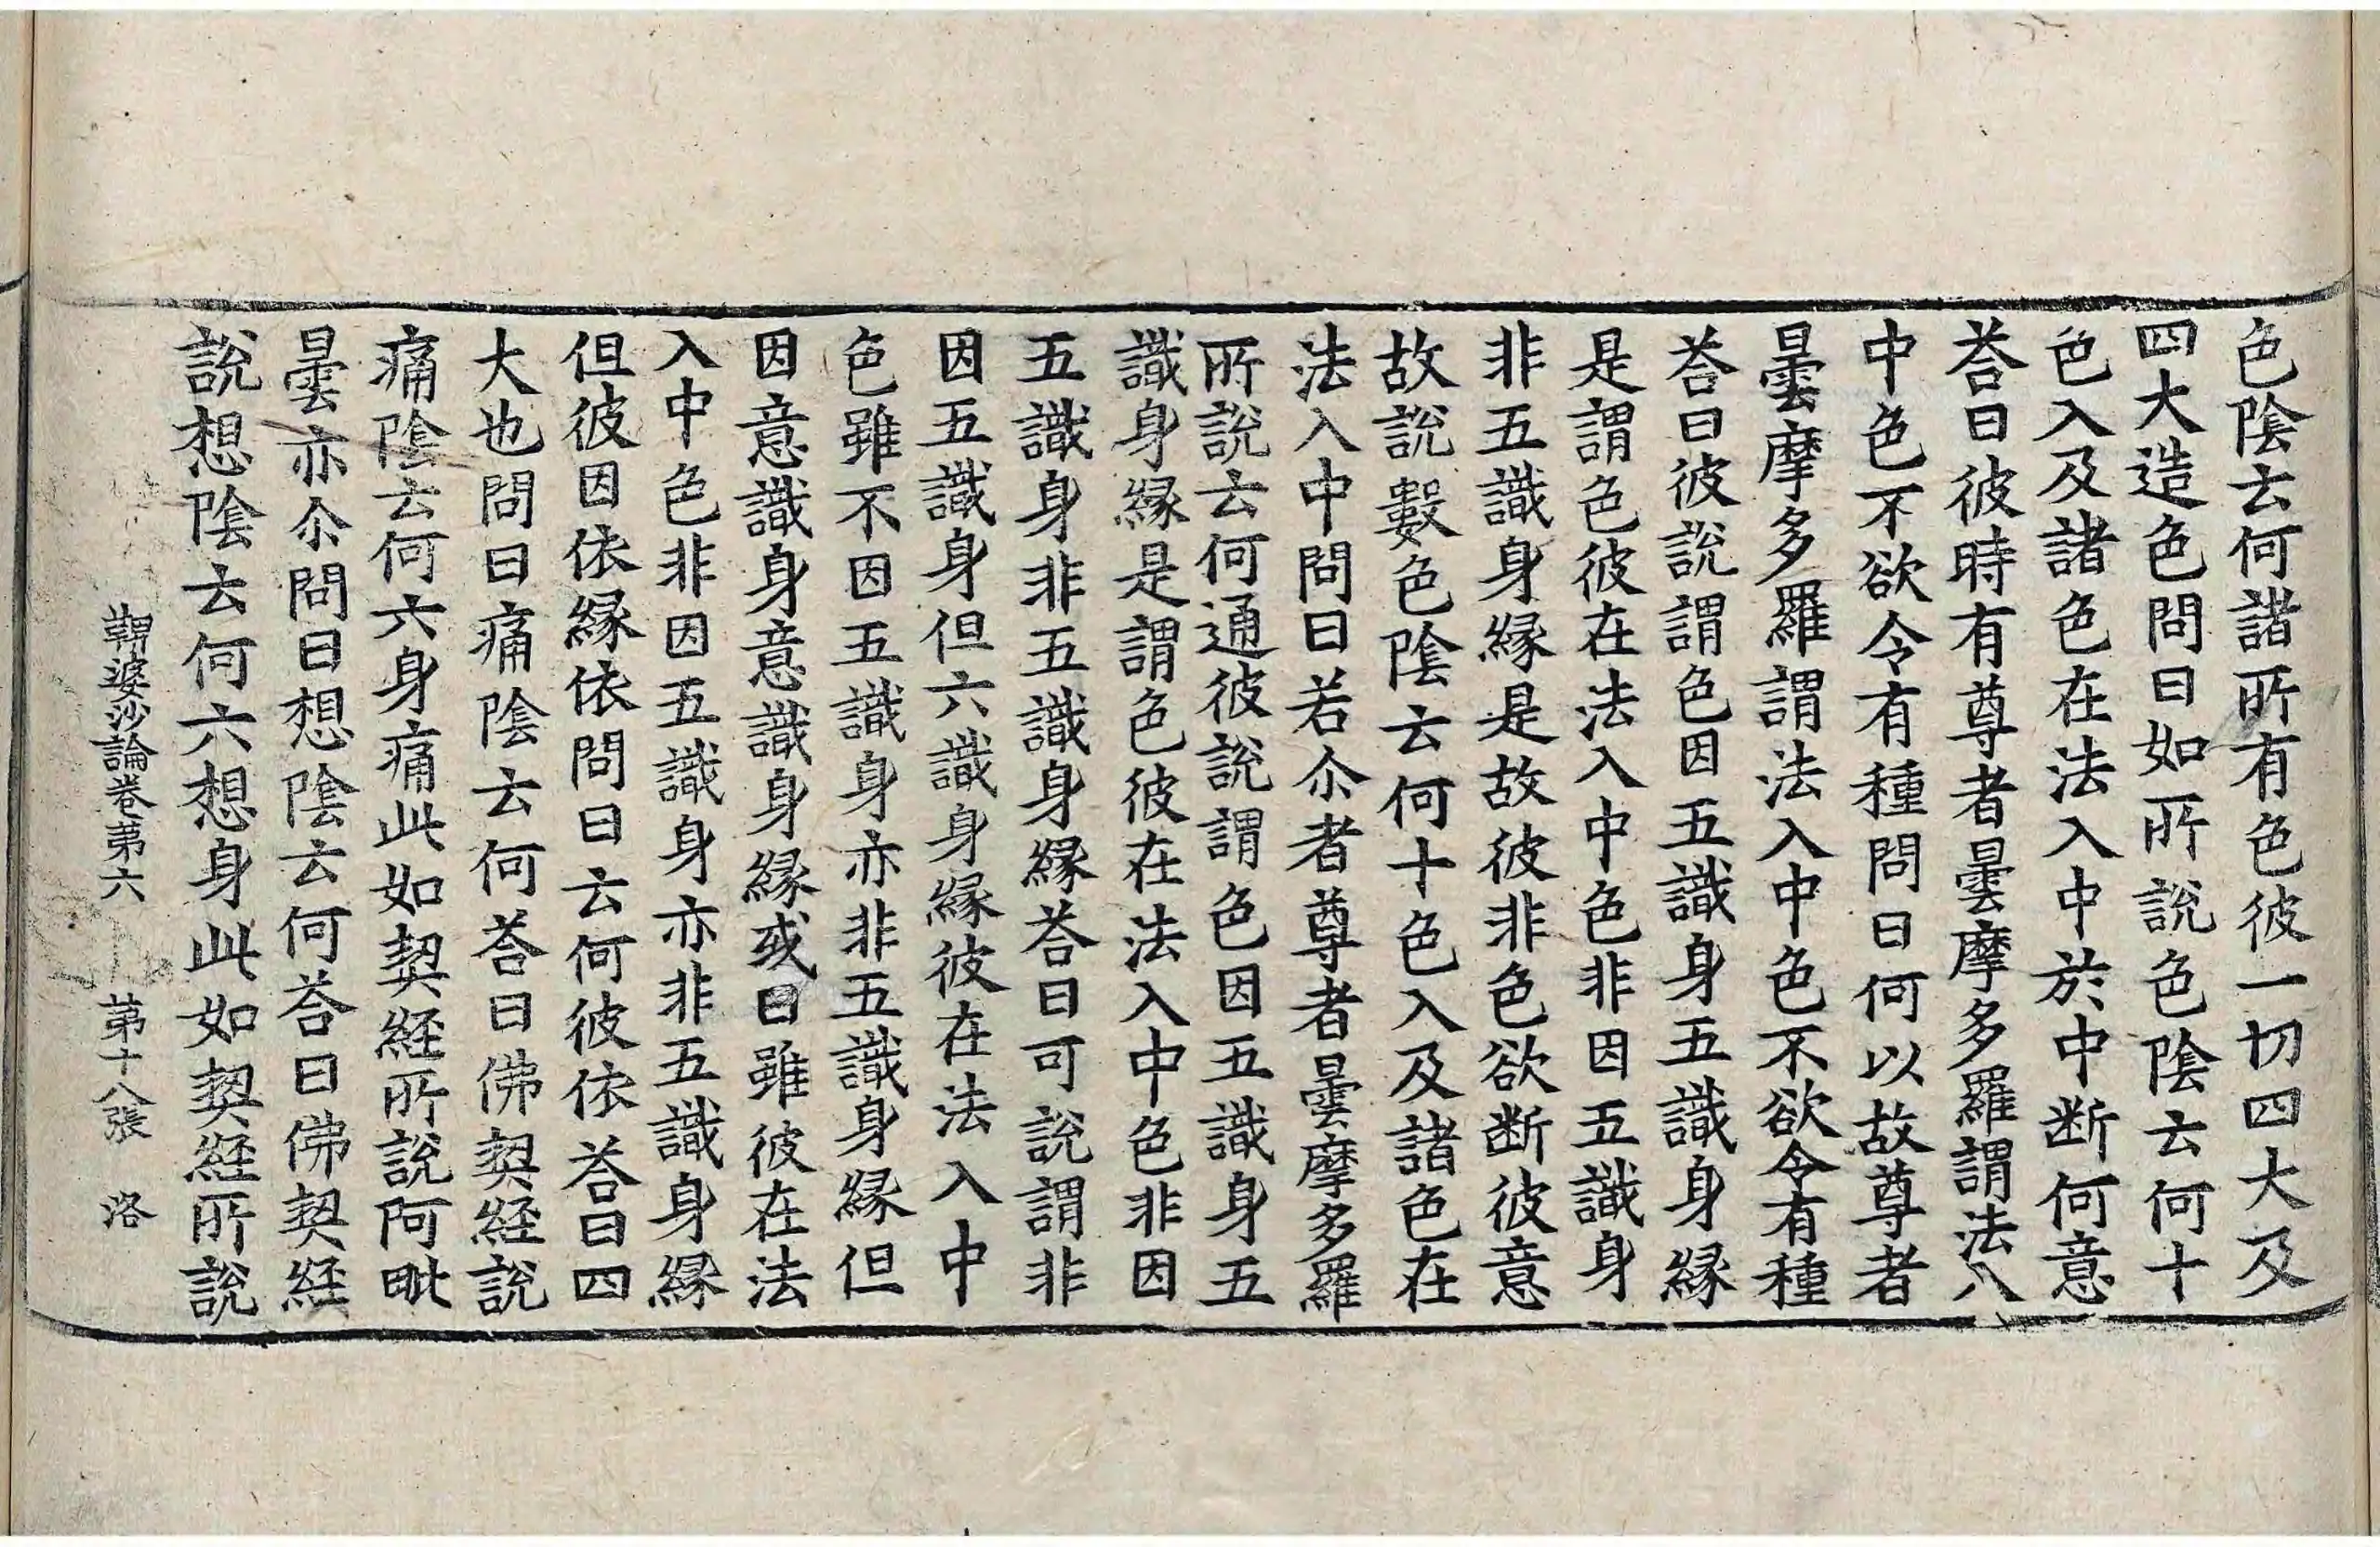 色陰云何諸所有色彼一切四大及
四大造色問曰如所說色陰云何十
色入及諸色在法入中於中断何意
荅曰彼時有尊者曇摩多羅謂法入
中色不欲令有種問曰何以故尊者
曇摩多羅謂法入中色不欲令有種
荅曰彼說謂色因五識身五識身縁
是謂色彼在法入中色非因五識身
非五識身縁是故彼非色欲断彼意
故說數色陰云何十色入及諸色在
法入中問曰若尒者尊者曇摩多羅
所說云何通彼說謂色因五識身五
識身縁是謂色彼在法入中色非因
五識身非五識身縁荅曰可說謂非
因五識身但六識身縁彼在法入中
色雖不因五識身亦非五識身縁但
因意識身意識身縁或曰雖彼在法
入中色非因五識身亦非五識身縁
但彼因依縁依問曰云何彼依荅曰四
大也問曰痛陰云何荅曰佛契経說
痛陰云何六身痛此如契経所說阿毗
曇亦尒問曰想陰云何荅曰佛契経
說想陰云何六想身此如契経所說
鞞婆沙論卷第六　第十八張　洛